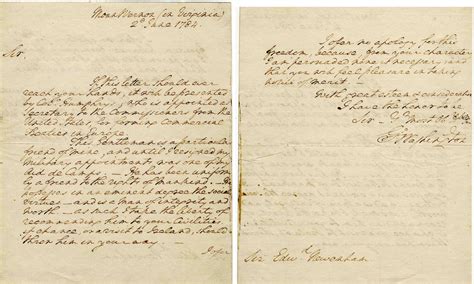 Mount Vernon (in Virginia)
2d June 1784.
Sir
If this letter should ever
reach your hands, it will be presented by
Colo. Humphrys; who is appointed
Secretary to the Commissioners from the
United States, for forming Commercial
Treaties in Europe.
This Gentleman is a particular
friend of mine, and until I resigned my
military appointments was one of my
Aid de Camps. He has been uniformly
a friend to the rights of mankind. He
possesses in an eminent degree the social
virtues and is a man of integrity and
worth. as such I take the liberty of
recommending him to your civilities
if chance, or a visit to Ireland, should
throw him in your way.
I offer
I offer no apology for this
freedom, because, from your character
I am persuaded none is necessary; and
that you will feel pleasure in taking
notice of merit.
With great esteem & consideration
I have the honor to be
Sir Yr Most Obt
G Washington
Sir Edwd Newenham